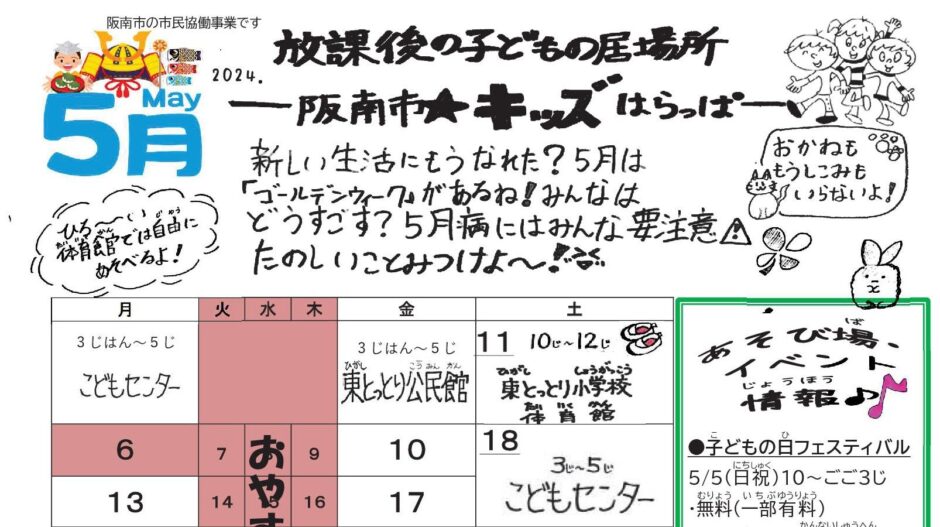 阪南市の市民協働事業です
2024.
放課後の子どもの居場所
阪南市★キッズはらっぱ
May
5月
新しい生活にもうなれた？5月は
「ゴールデンウィーク」があるね！みんなは
どうすごす？5月病にはみんな要注意
たのしいことみつけよ〜！
おかねも
もうしこみも
いらないよ！
ひろ〜い
体育館では自由に
あそべるよ！
月 火 水 木 金 土
3じはん～5じ
こどもセンター
3じはん～5じ
東とっとり公民館
11 10じ～12じ
東とっとり小学校
体育館
6 7 9 10
18
3じ～5じ
こどもセンター
13 14 15 16 17
おやす
あそび場、
イベント
情報♪
●子どもの日フェスティバル
5/5(日祝)10～ごご3じ
・無料(一部有料)